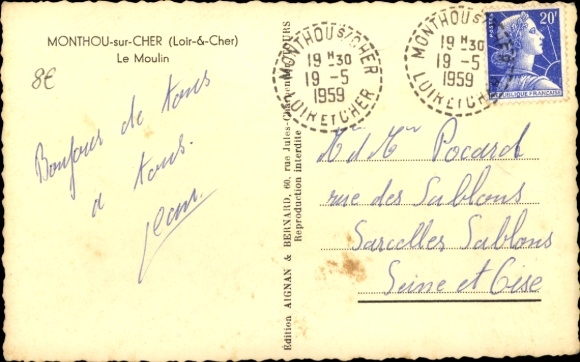 MONTHOU-sur-CHER (Loir-&-Cher)
Le Moulin
8€
Bonjour de tous
a tous.
Jean.
Edition AIGNAN & BERNARD, 60, rue Jules-Charpentier TOURS
Reproduction interdite
MONTHOU S/ CHER
19 H 30
19 -5
1959
LOIR ET CHER
MONTHOU S/ CHER
19 H 30
19 -5
1959
LOIR ET CHER
POSTES
20F
REPUBLIQUE FRANÇAISE
Mr et Mme Pocard
rue des Sablons
Sarcelles Sablons
Seine et Oise